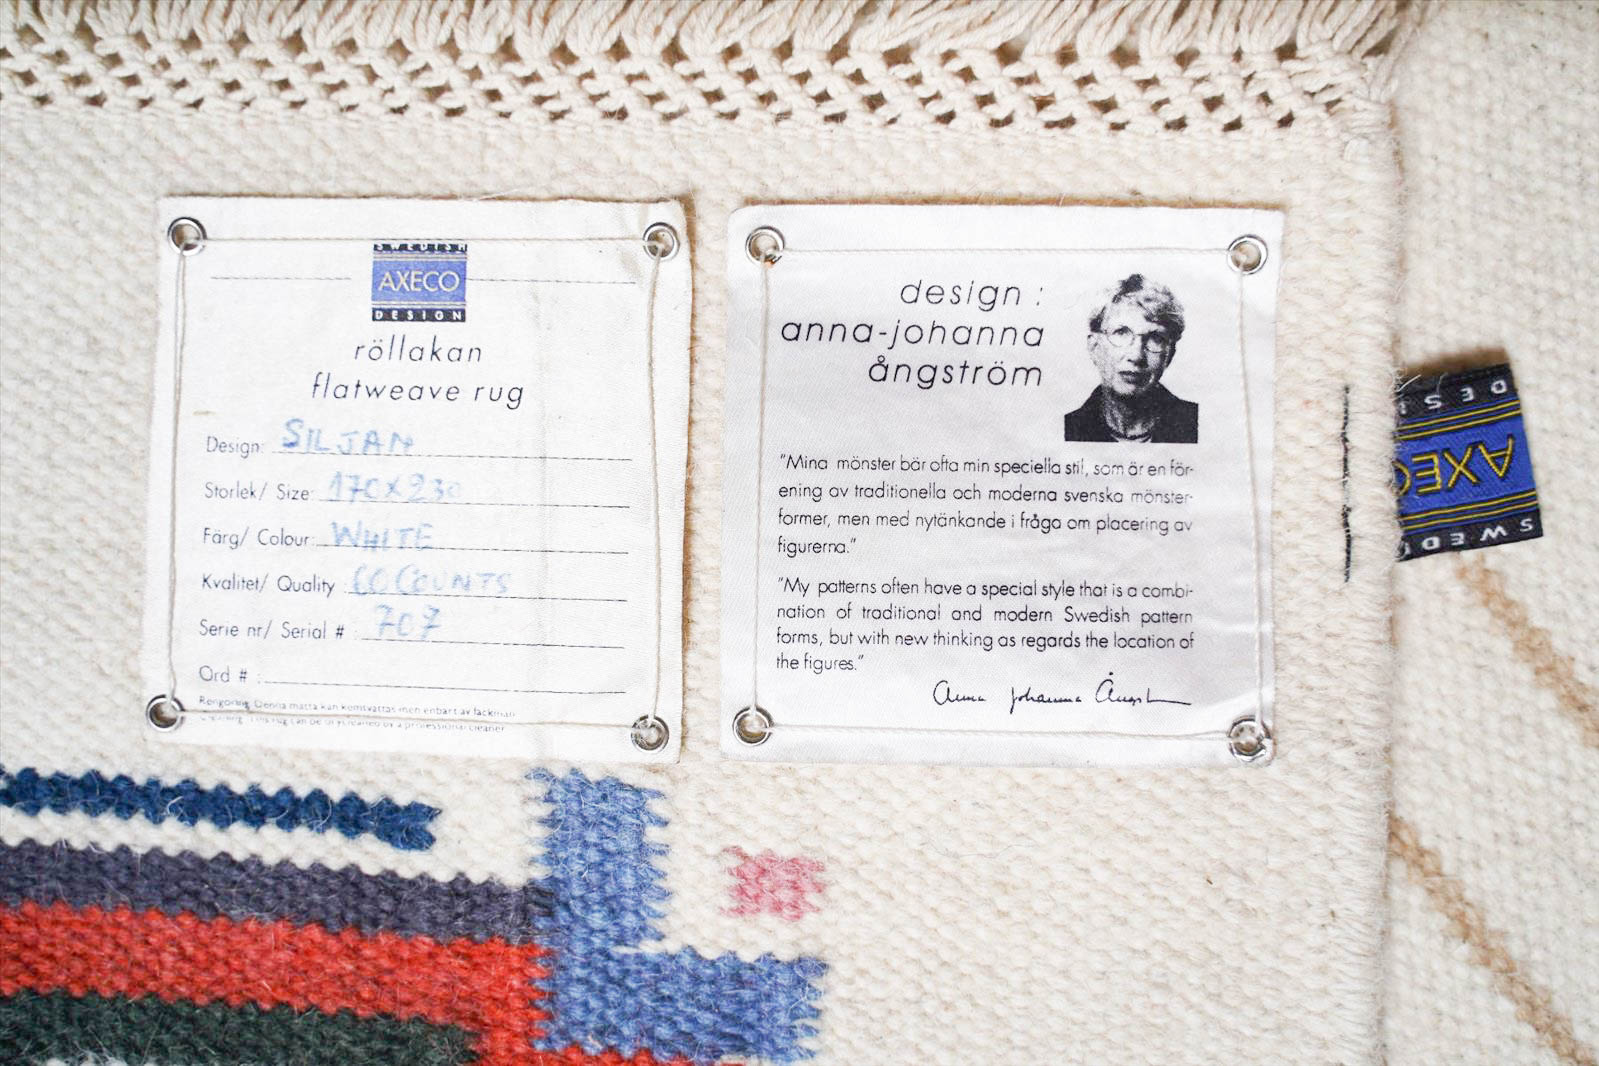 SWEDISH
AXECO
DESIGN
röllakan
flatweave rug
Design: SILJAN
Storlek/ Size: 170x230
Färg/ Colour: WHITE
Kvalitet/ Quality : 60 COUNTS
Serie nr/ Serial # : 707
Ord # :
Rengöring: Denna matta kan kemtvättas men enbart av fackman
Cleaning: This rug can be drycleaned by a professional cleaner
design :
anna-johanna
ångström
"Mina mönster bär ofta min speciella stil, som är en för-
ening av traditionella och moderna svenska mönster-
former, men med nytänkande i fråga om placering av
figurerna."
"My patterns often have a special style that is a combi-
nation of traditional and modern Swedish pattern
forms, but with new thinking as regards the location of
the figures."
Anna Johanna Ångst
SWEDI
AXEC
DESI